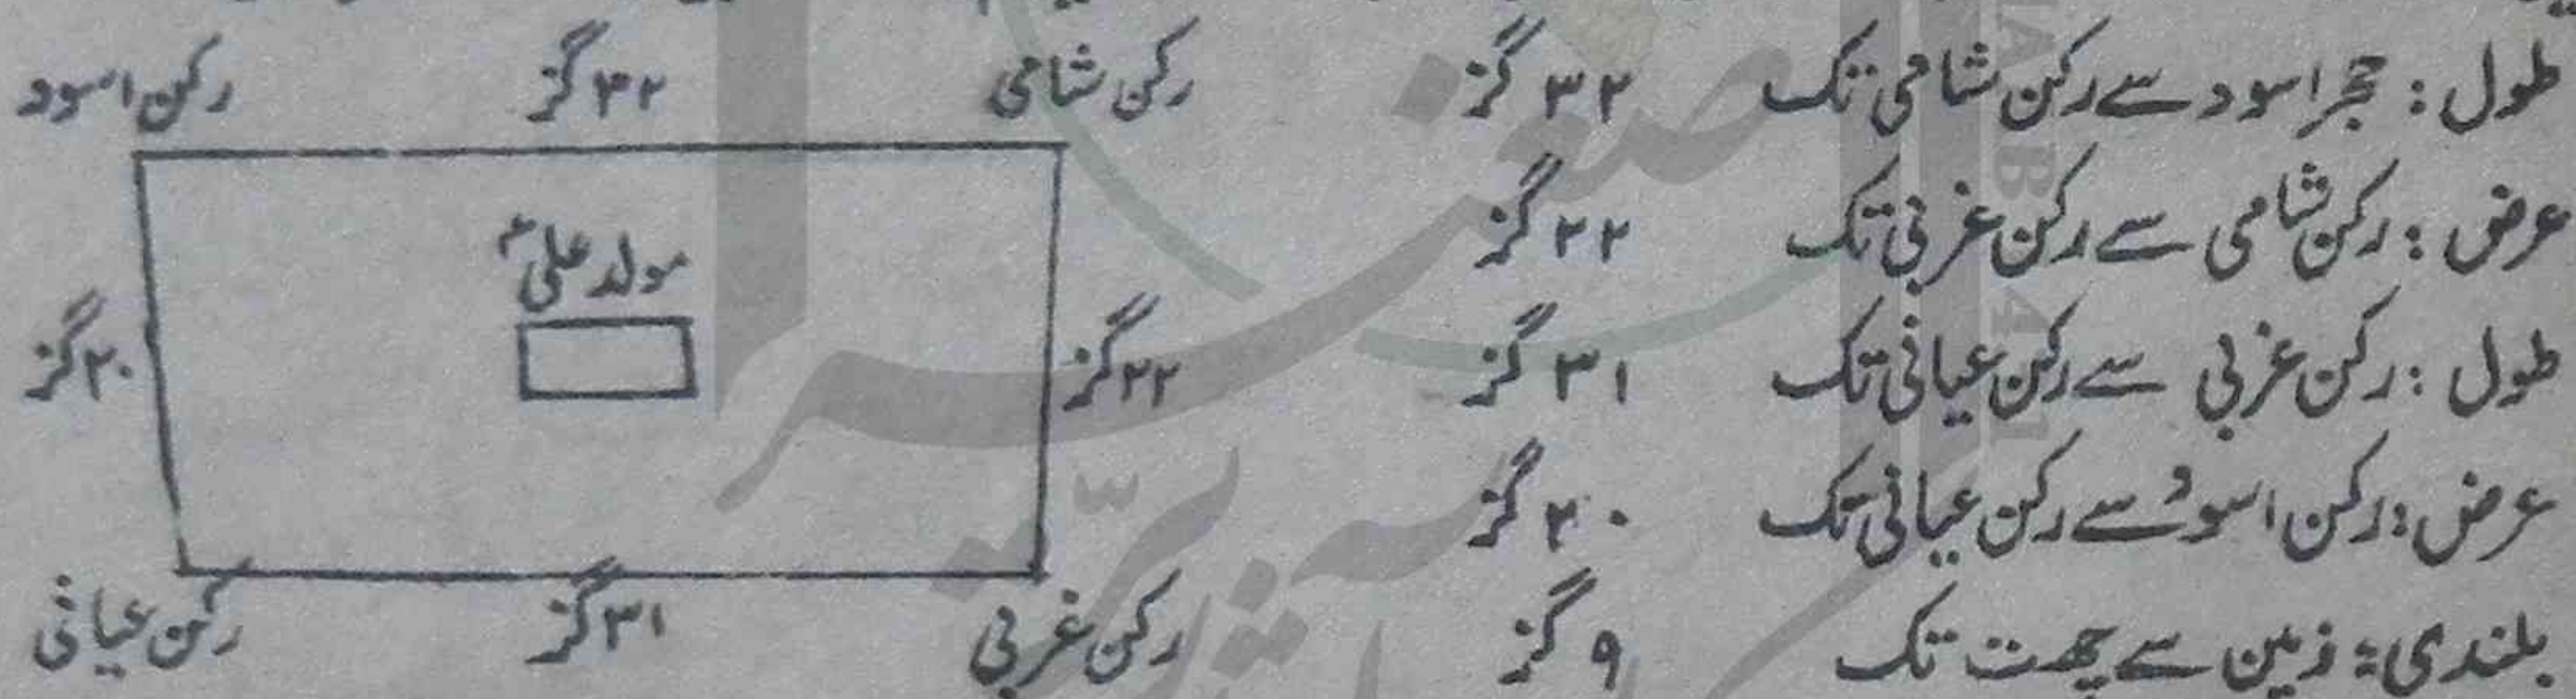 طول : حجر اسود سے رکن شامی تک ۳۲ گز
عرض : رکن شامی سے رکن غربی تک ۲۲ گز
طول : رکن غربی سے رکن عیانی تک ۳۱ گز
عرض : رکن اسود سے رکن عیانی تک ۲۰ گز
بلندی : زمین سے چھت تک ۹ گز
رکن شامی ۳۲ گز رکن اسود
مولد علیؑ
۲۲ گز ۲۰ گز
رکن غربی ۳۱ گز رکن عیانی